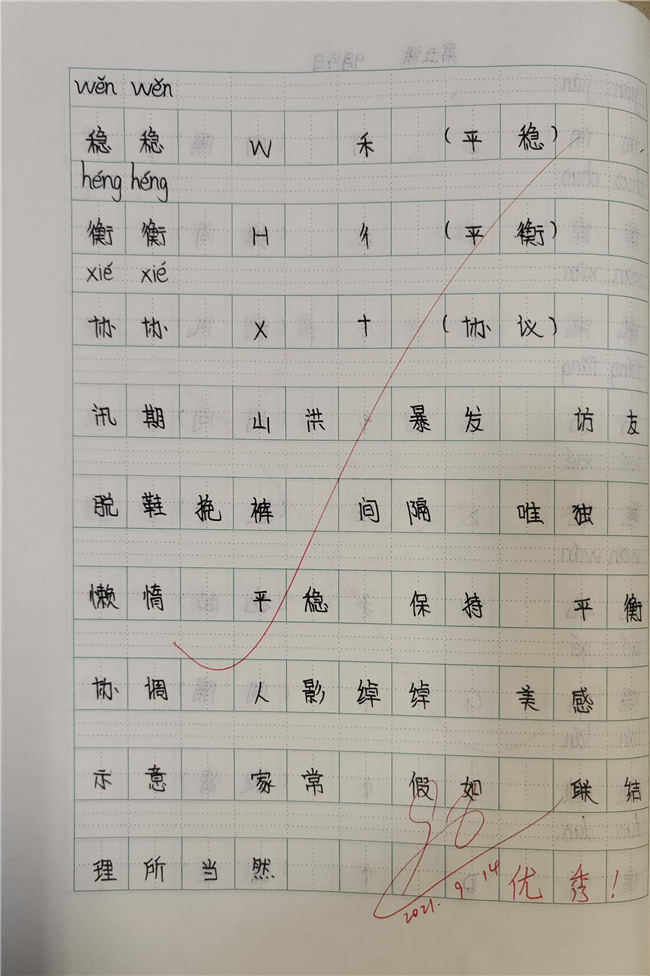 wěn wěn
稳 稳 W 禾 (平 稳)
héng héng
衡 衡 H 彳 (平 衡)
xié xié
协 协 X 十 (协 议)
汛 期 山 洪 暴 发 访 友
脱 鞋 挽 裤 间 隔 唯 独
懒 惰 平 稳 保 持 平 衡
协 调 人 影 绰 绰 美 感
示 意 家 常 假 如 联 结
理 所 当 然
2021. 9. 14 优 秀!